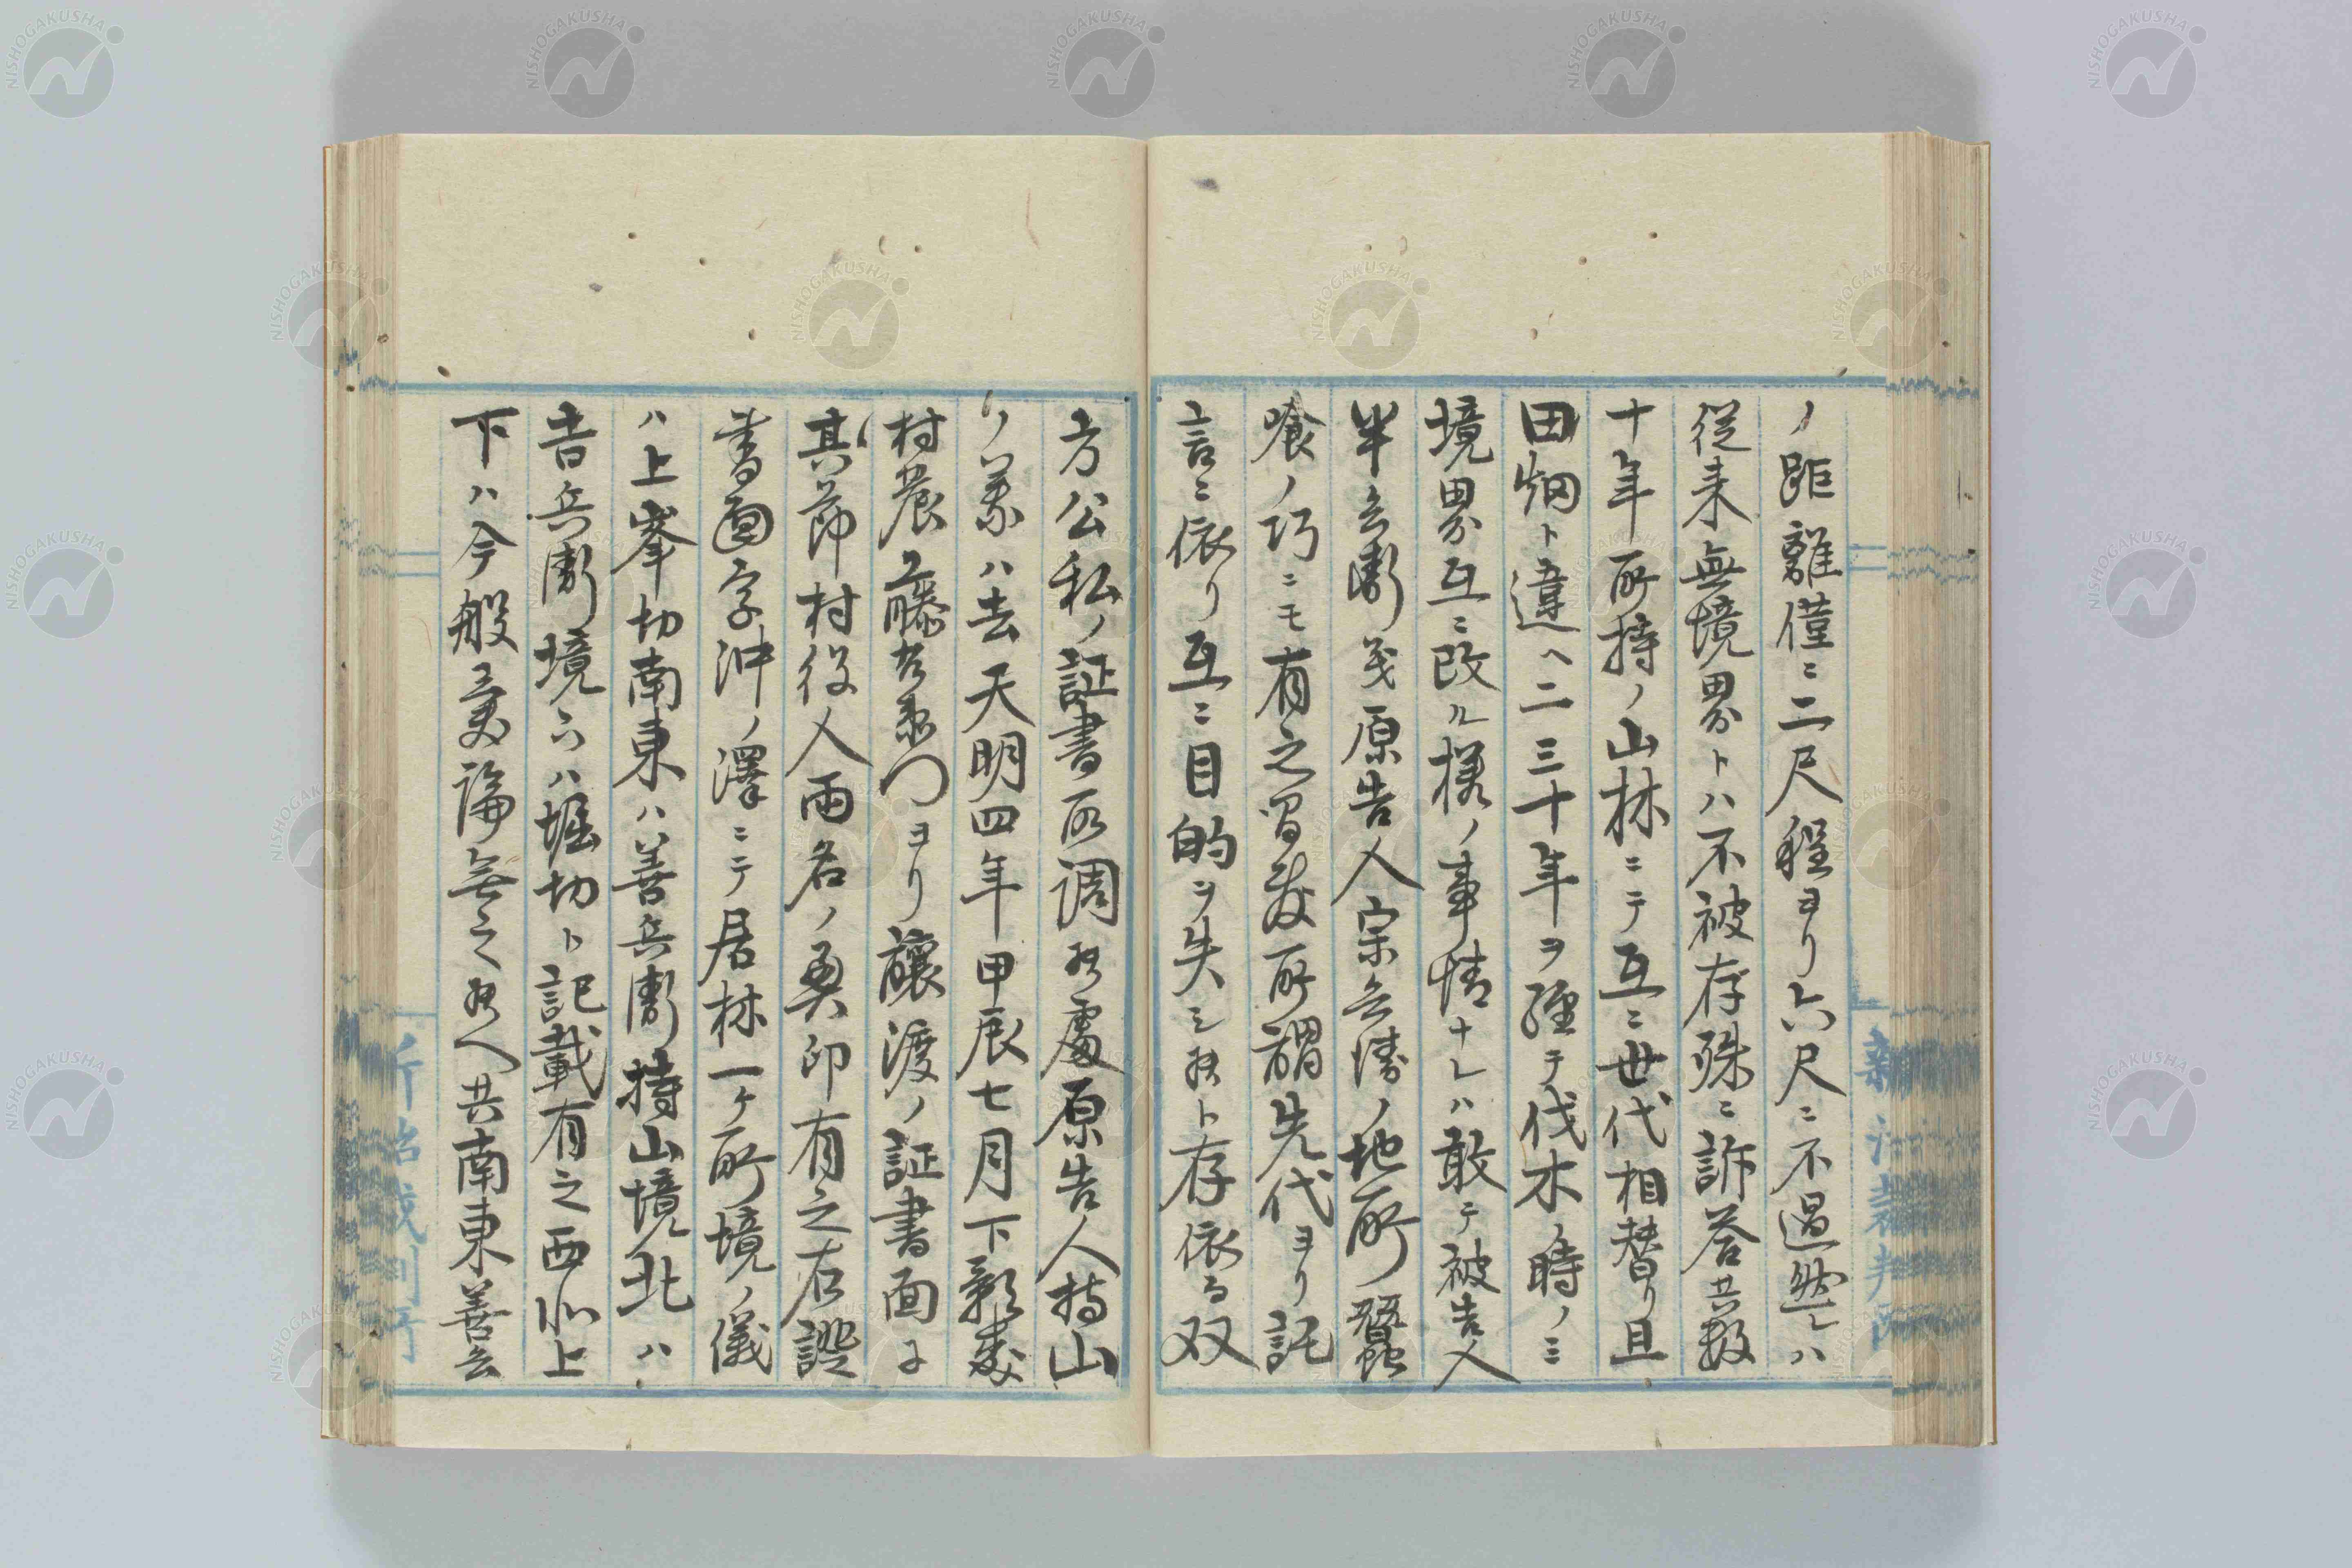 ノ距離僅ニ二尺程ヨリ六尺ニ不過然レハ
従来無境界トハ不被存殊ニ訴答共数
十年所持ノ山林ニテ互ニ世代相替リ且
田畑ト違ヘ二三十年ヲ経テ伐木ノ時ノミ
境界互ニ改ル様ノ事情ナレハ敢テ被告人
半兵衛義原告人宗兵衛ノ地所蚕
喰ノ巧ニモ有之間敷所謂先代ヨリ託
言ニ依リ互ニ目的ヲ失シ候ト存依而双
方公私ノ証書取調候處原告人持山
ノ義ハ去天明四年甲辰七月下影森
村農藤右衛門ヨリ譲渡ノ証書面ニ
其節村役人両名ノ奥印有之右證
書面字沖ノ澤ニテ居林一ケ所境ノ儀
ハ上峯切南東ハ善兵衛持山境北ハ
吉兵衛境六ハ堀切ト記載有之西北上
下ハ今般争論無之候ヘ共南東善兵
新治裁判所